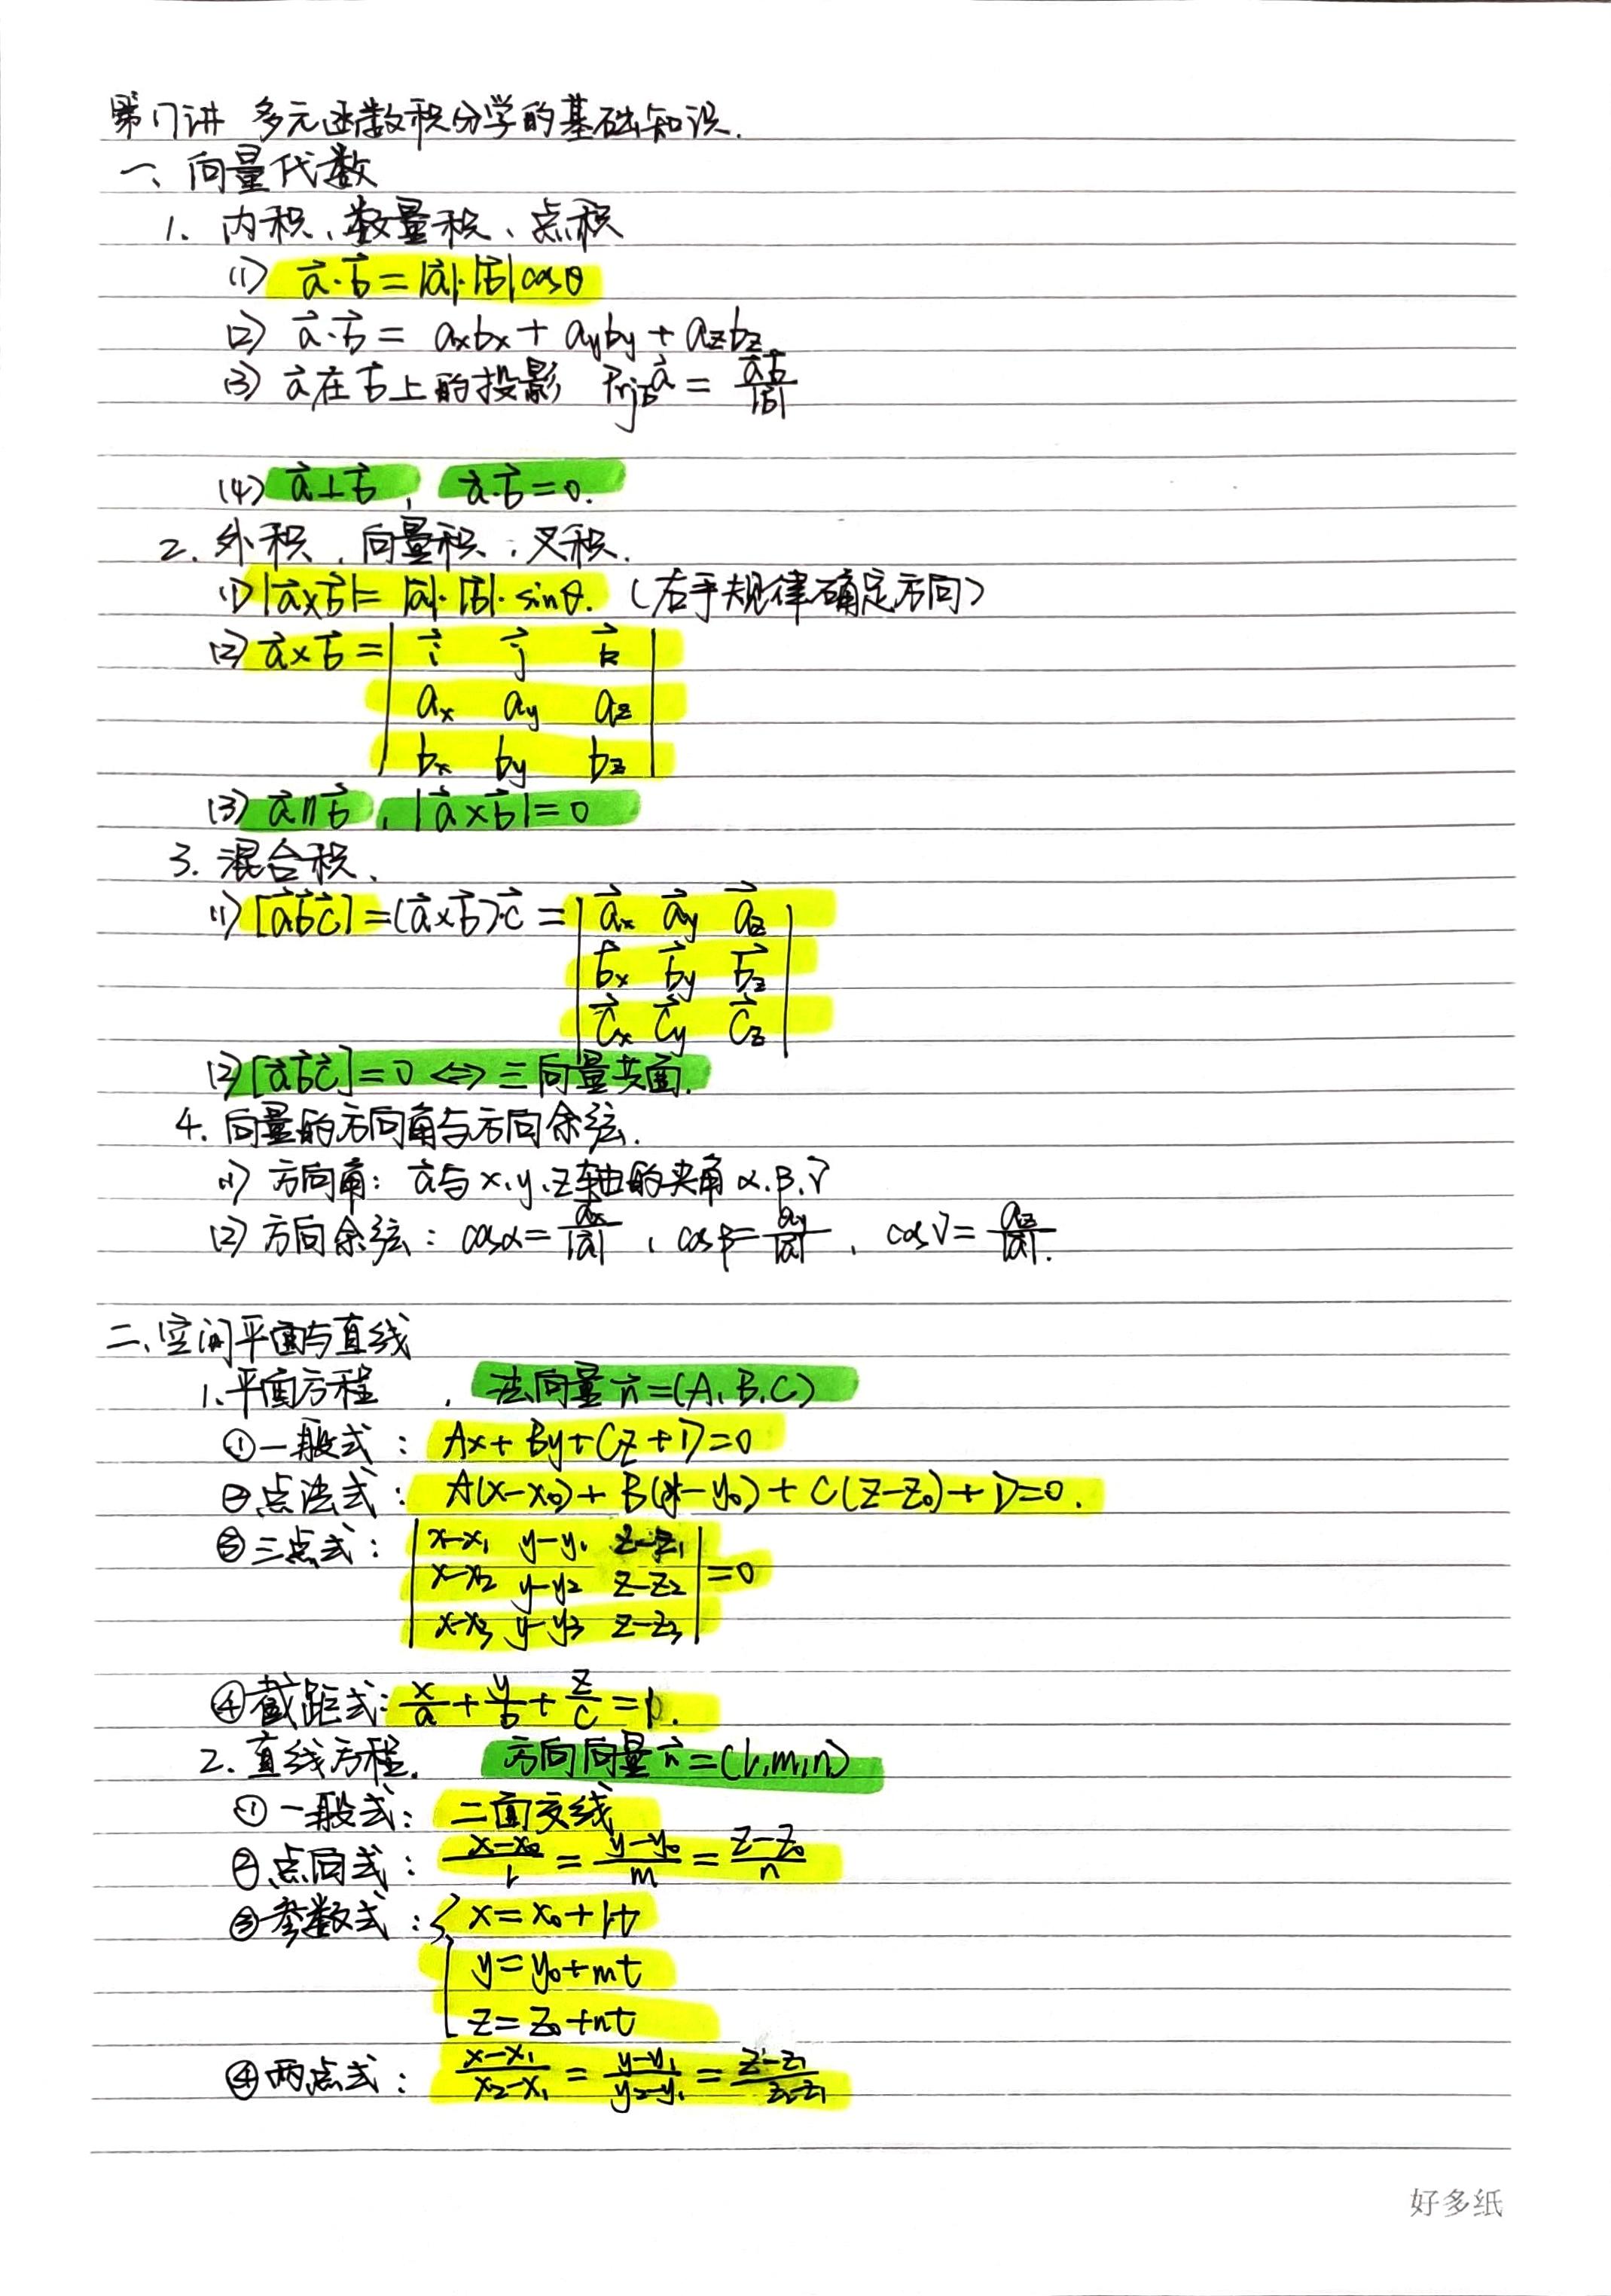 第17讲 多元函数积分学的基础知识.
一、向量代数
1. 内积、数量积、点积
(1) a⃗·b⃗=|a⃗|·|b⃗|cosθ
(2) a⃗·b⃗= axbx+ayby+azbz
(3) a⃗在b⃗上的投影 Prjb⃗a⃗ = a⃗b⃗/|b⃗|
(4) a⃗⊥b⃗, a⃗·b⃗=0.
2. 外积、向量积、叉积.
(1) |a⃗×b⃗|=|a⃗|·|b⃗|·sinθ. (右手规律确定方向)
(2) a⃗×b⃗= | i⃗ j⃗ k⃗ |
| ax ay az |
| bx by bz |
(3) a⃗∥b⃗, |a⃗×b⃗|=0
3. 混合积、
(1) [a⃗b⃗c⃗]=(a⃗×b⃗)·c⃗ = | a⃗x a⃗y a⃗z |
| b⃗x b⃗y b⃗z |
| c⃗x c⃗y c⃗z |
(2) [a⃗b⃗c⃗]=0 ⟺ 三向量共面.
4. 向量的方向角与方向余弦.
(1) 方向角: a⃗与x、y、z轴的夹角α、β、γ
(2) 方向余弦: cosα=ax/|a⃗|, cosβ=ay/|a⃗|, cosγ=az/|a⃗|.
二、空间平面与直线
1. 平面方程, 法向量n⃗=(A,B,C)
①一般式: Ax+By+Cz+D=0
②点法式: A(x-x₀)+B(y-y₀)+C(z-z₀)+D=0.
③三点式: | x-x₁ y-y₁ z-z₁ |
| x-x₂ y-y₂ z-z₂ | =0
| x-x₃ y-y₃ z-z₃ |
④截距式: x/a+y/b+z/c=1.
2. 直线方程. 方向向量n⃗=(l,m,n)
①一般式: 二面交线
②点向式: (x-x₀)/l=(y-y₀)/m=(z-z₀)/n
③参数式: { x=x₀+lt
y=y₀+mt
z=z₀+nt
④两点式: (x-x₁)/(x₂-x₁)=(y-y₁)/(y₂-y₁)=(z-z₁)/(z₂-z₁)
好多纸